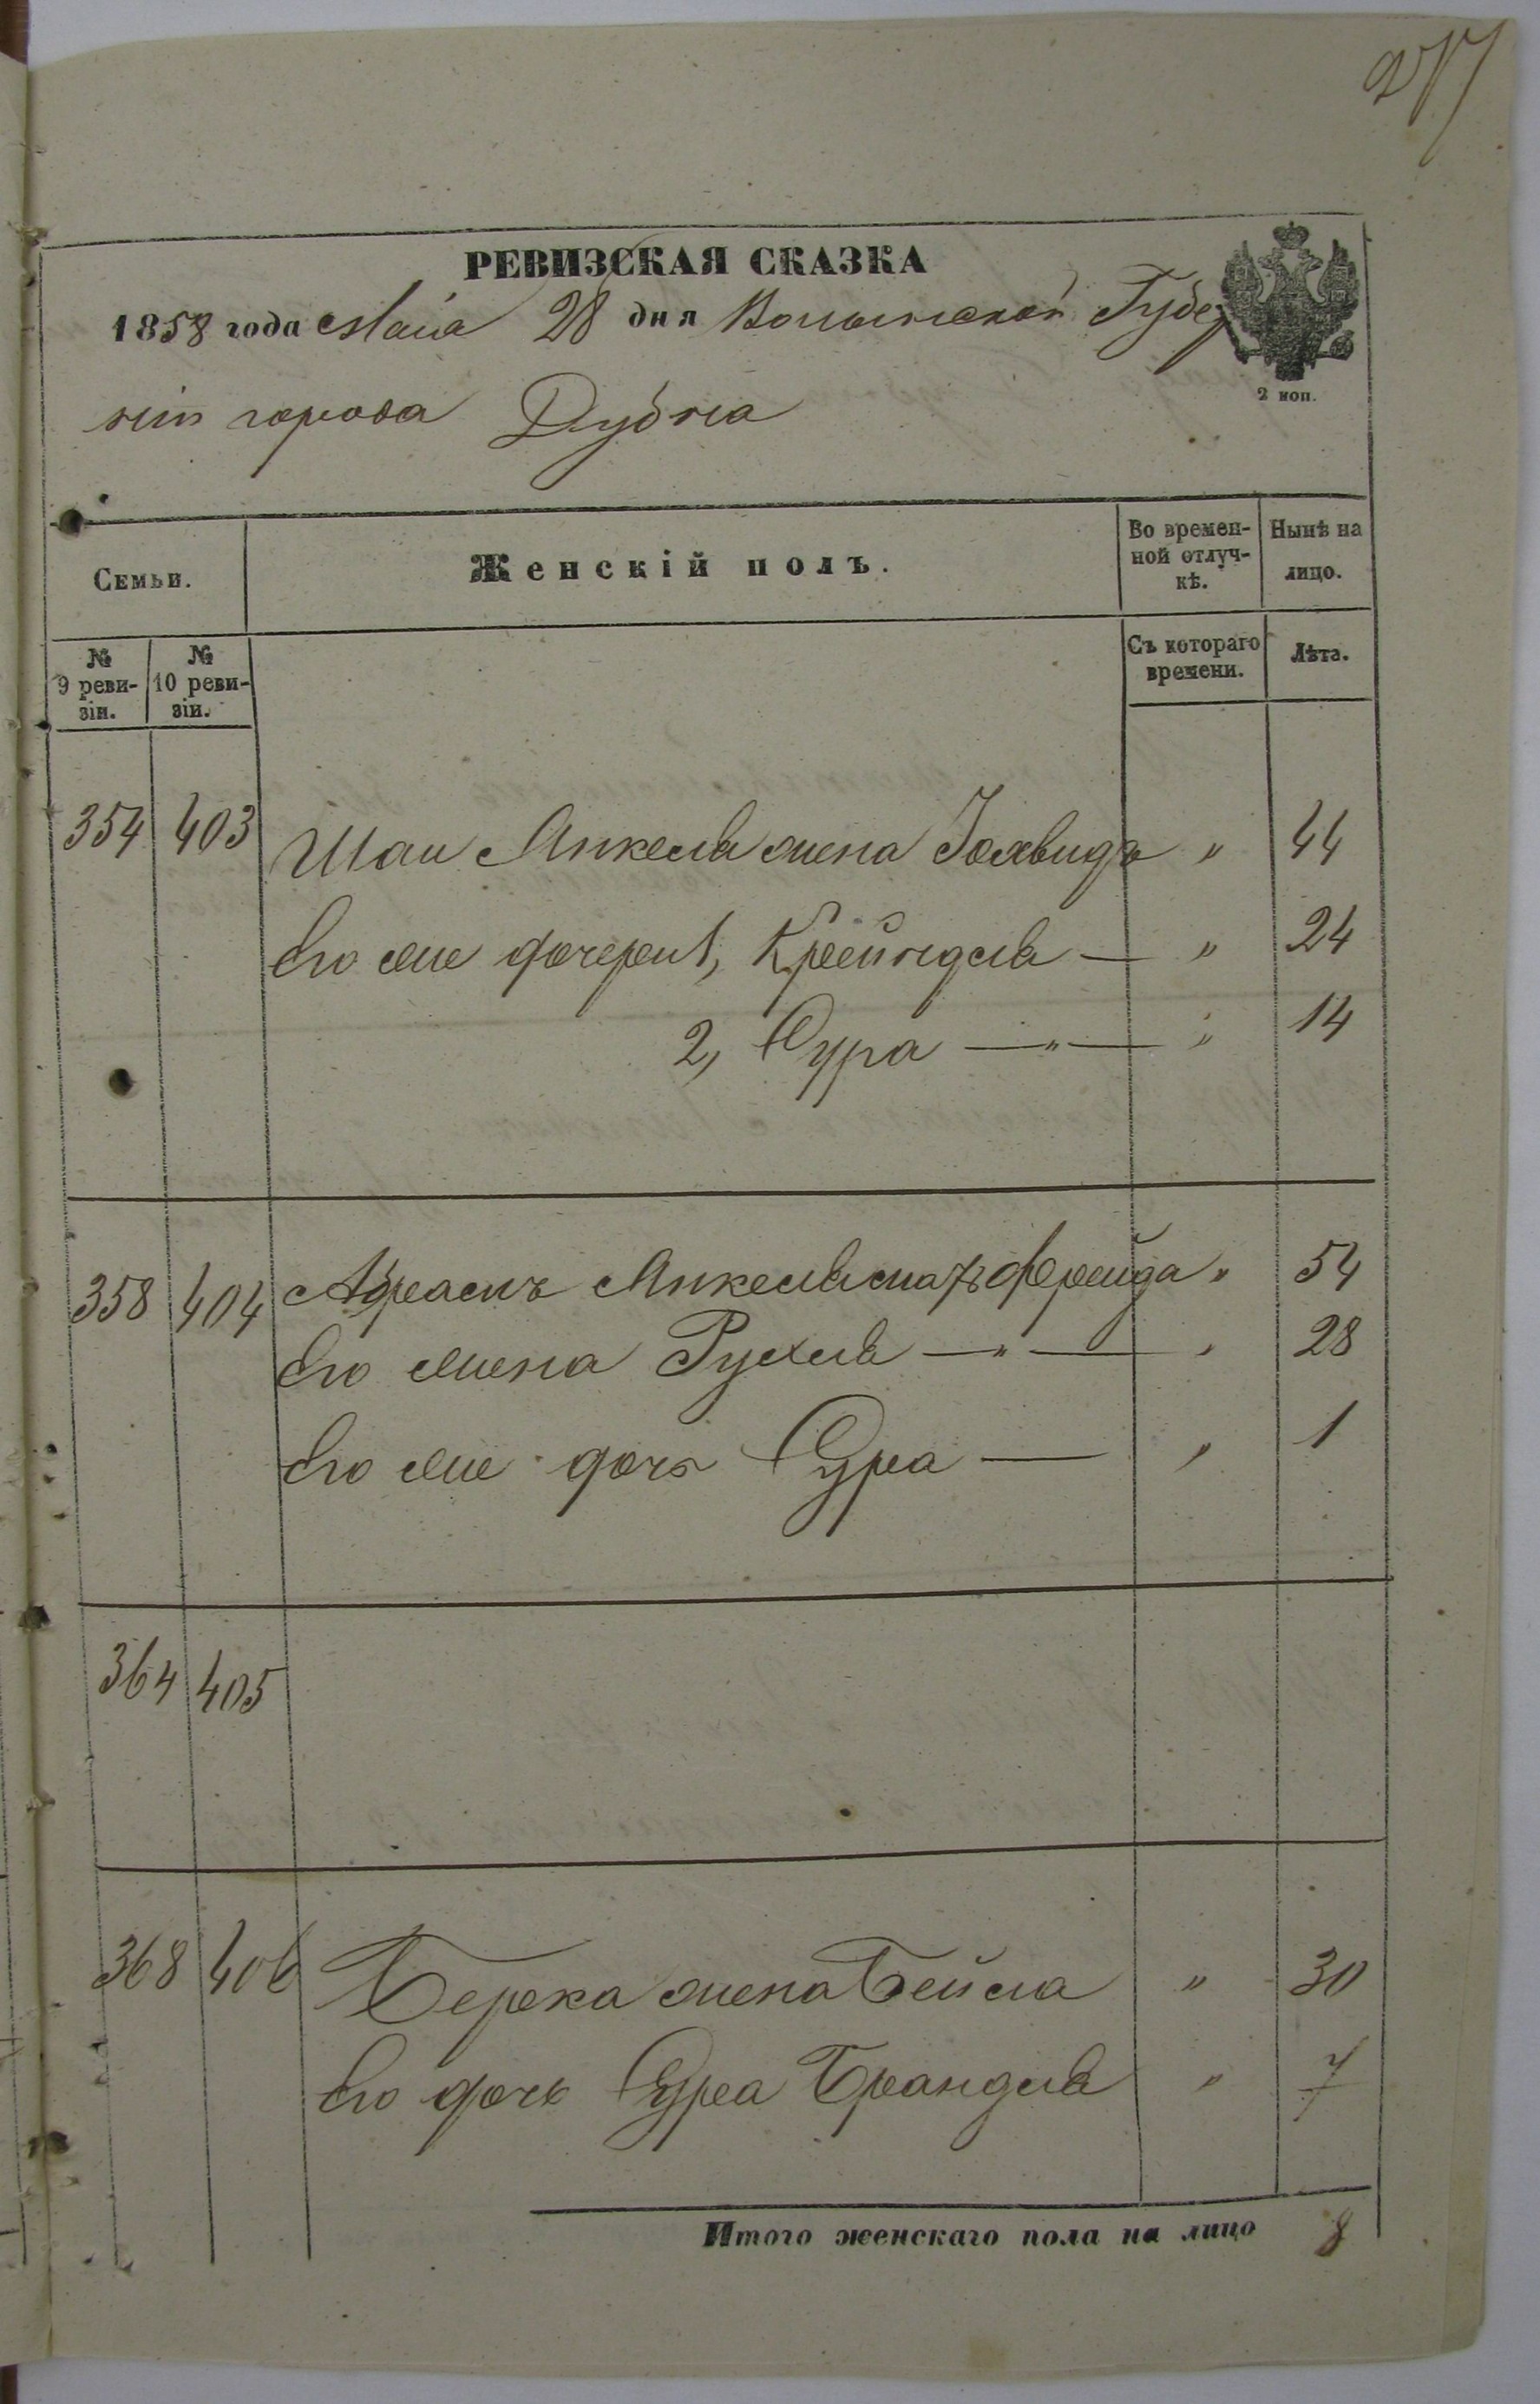 277
РЕВИЗСКАЯ СКАЗКА
1858 года Мая 28 дня Волынской Губер
ніи города Дубна
2 коп.
Семьи.
Женскій полъ.
Во времен-
ной отлуч-
кѣ.
Нынѣ на
лицо.
№
9 реви-
зіи.
№
10 реви-
зіи.
Съ котораго
времени.
Лѣта.
354 403 Янкеля жена " 44
Его же дочери 1, Крейндля — " 24
2, Сура —"— " 14
358 404 Абрамъ Янкеля мать Фрейда " 54
Его жена Рухля —"— " 28
Его же дочь Сура — " 1
364 405
368 406 Берка жена Бейла " 30
Его дочь Сура Брандля " 7
Итого женскаго пола на лицо 8